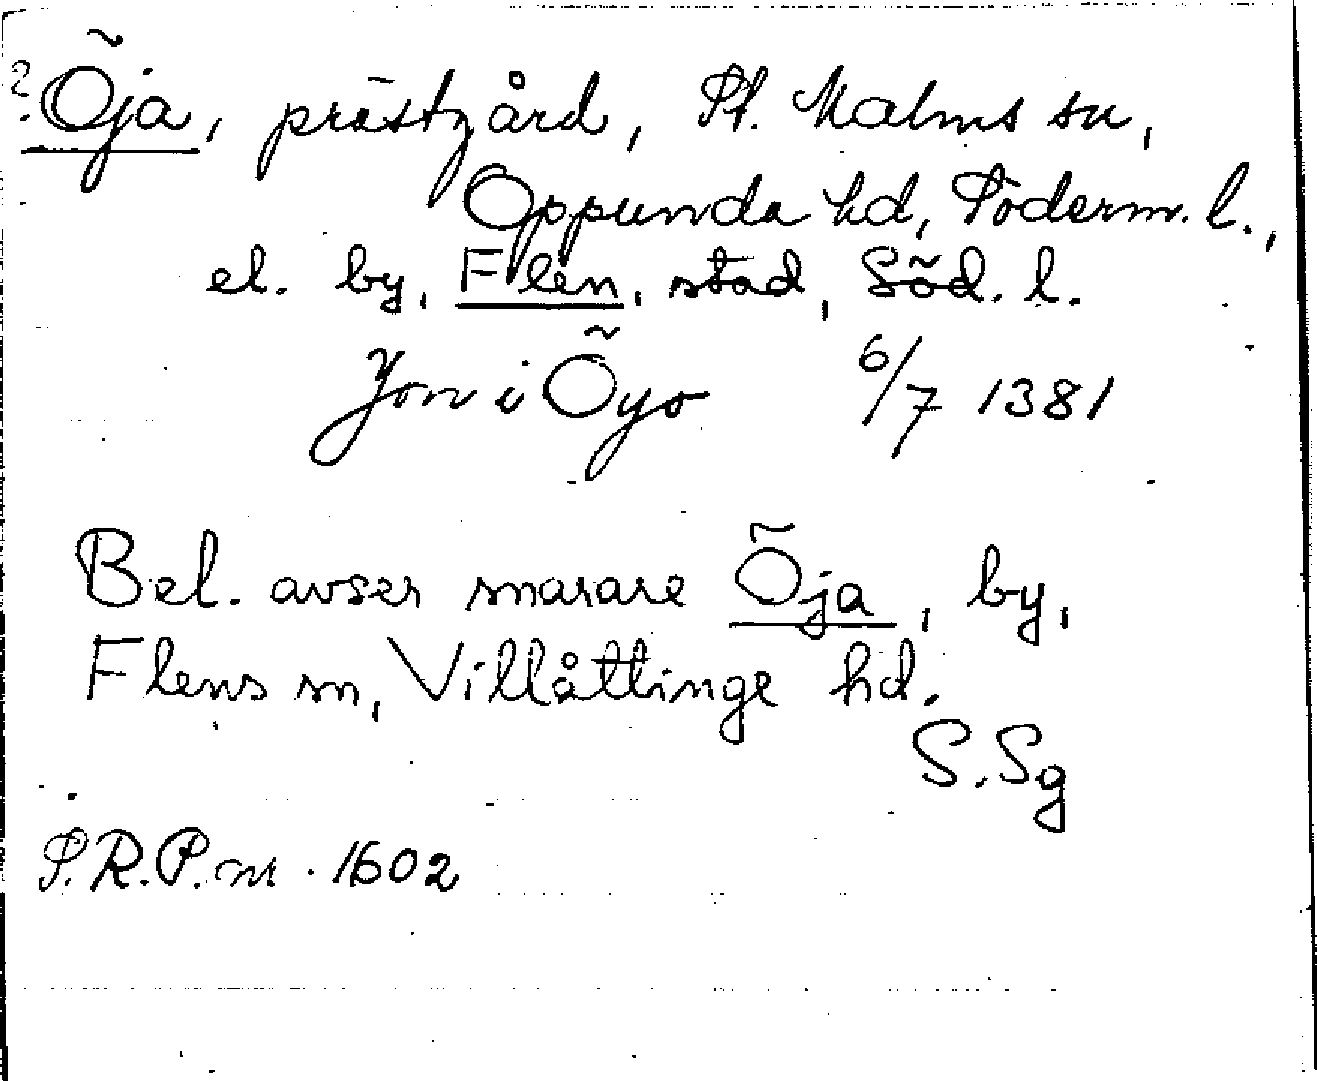 ? Öja, prästgård, St. Malms sn,
Oppunda hd, Söderm. l.,
el. by, Flen, stad, Söd. l.
Jon i Öyo 6/7 1381
Bel. avser snarare Öja, by,
Flens sn, Villåttinge hd.
S.Sg
S.R.P. nr. 1602